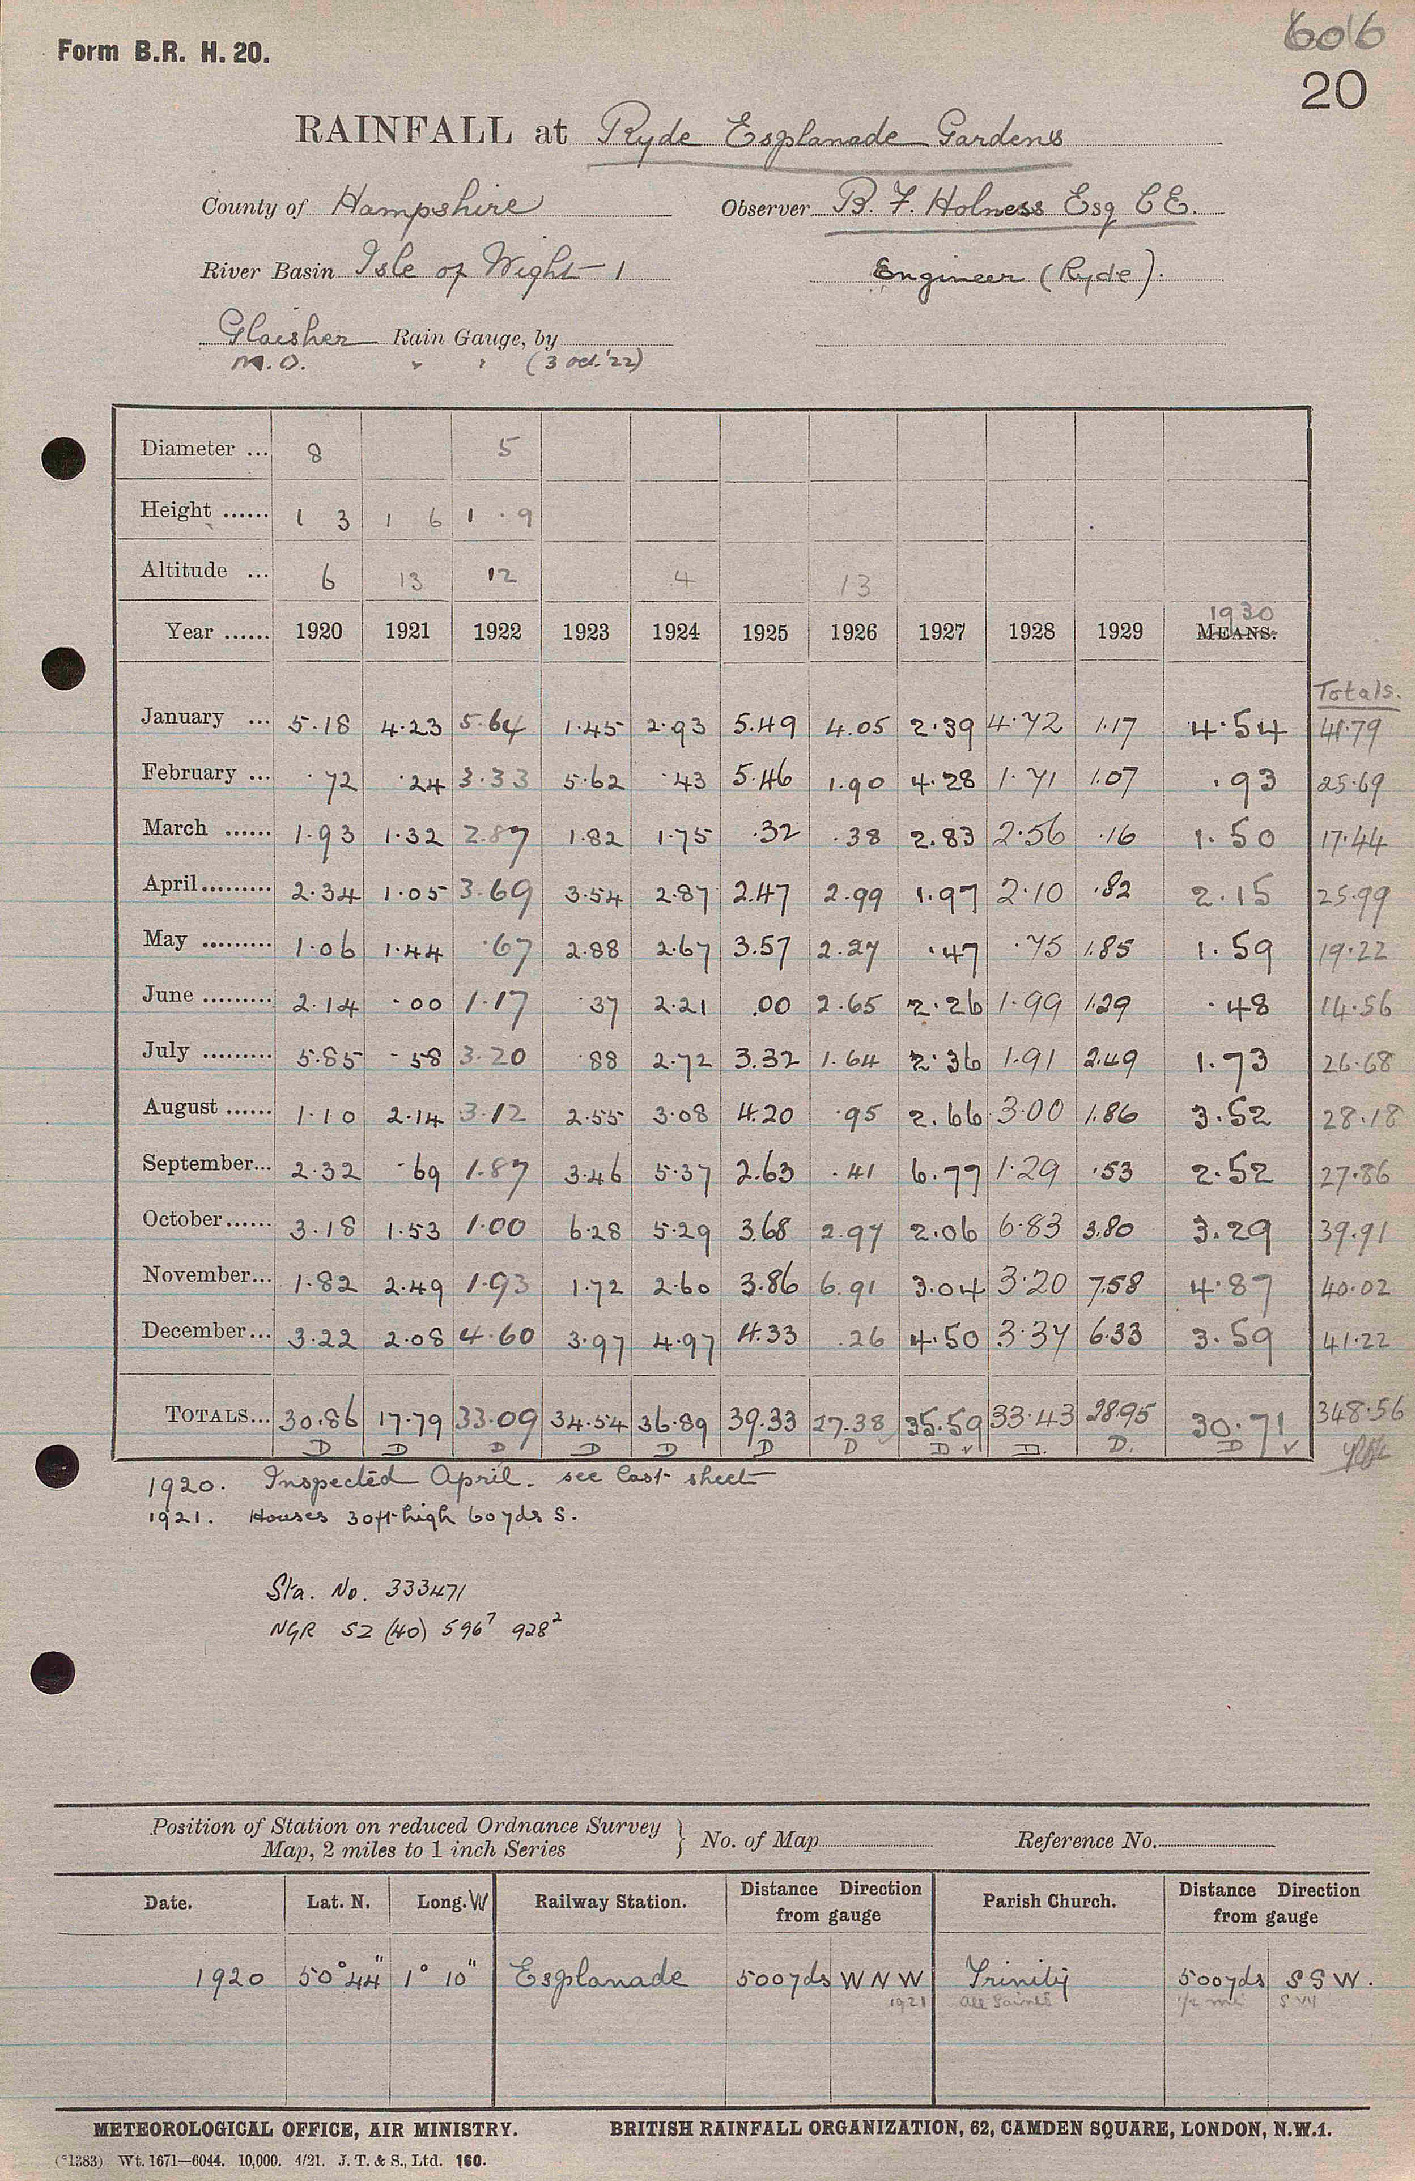 6016
Form B.R. H. 20.
20
RAINFALL at Ryde Esplanade Gardens
County of Hampshire Observer B. F. Holness Esq C E.
River Basin Isle of Wight 1 Engineer (Ryde).
Glaisher Rain Gauge, by
M.O. " " (3 Oct. '22)
Diameter ... 8 5
Height ...... 1 3 1 6 1 . 9
Altitude ... 6 13 12 4 13
1930
Year ...... 1920 1921 1922 1923 1924 1925 1926 1927 1928 1929 MEANS.
Totals.
January ... 5.18 4.23 5.64 1.45 2.93 5.49 4.05 2.39 4.72 1.17 4.54 41.79
February ... .72 .24 3.33 5.62 .43 5.46 1.90 4.28 1.71 1.07 .93 25.69
March ...... 1.93 1.32 2.87 1.82 1.75 .32 .38 2.83 2.56 .16 1.50 17.44
April......... 2.34 1.05 3.69 3.54 2.87 2.47 2.99 1.97 2.10 .82 2.15 25.99
May ......... 1.06 1.44 .67 2.88 2.67 3.57 2.27 .47 .75 1.85 1.59 19.22
June ......... 2.14 .00 1.17 .37 2.21 .00 2.65 2.26 1.99 1.29 .48 14.56
July ......... 5.85 .58 3.20 .88 2.72 3.32 1.64 2.36 1.91 2.49 1.73 26.68
August ...... 1.10 2.14 3.12 2.55 3.08 4.20 .95 2.66 3.00 1.86 3.52 28.18
September... 2.32 .69 1.87 3.46 5.37 2.63 .41 6.77 1.29 .53 2.52 27.86
October...... 3.18 1.53 1.00 6.28 5.29 3.68 2.97 2.06 6.83 3.80 3.29 39.91
November... 1.82 2.49 1.93 1.72 2.60 3.86 6.91 3.04 3.20 7.58 4.87 40.02
December... 3.22 2.08 4.60 3.97 4.97 4.33 .26 4.50 3.37 6.33 3.59 41.22
TOTALS... 30.86 17.79 33.09 34.54 36.89 39.33 27.38 35.59 33.43 28.95 30.71 348.56
D D D D D D D D ✓ D. D. D ✓
1920. Inspected April. see last sheet
1921. Houses 30ft high 60 yds S.
Sta. No. 333471
NGR SZ (40) 596⁷ 928²
Position of Station on reduced Ordnance Survey
Map, 2 miles to 1 inch Series } No. of Map Reference No.
Date. Lat. N. Long. W Railway Station. Distance Direction from gauge Parish Church. Distance Direction from gauge
1920 50° 44" 1° 10" Esplanade 500 yds W N W Trinity 500 yds S S W.
1921 All Saints 1/2 mi S W
METEOROLOGICAL OFFICE, AIR MINISTRY. BRITISH RAINFALL ORGANIZATION, 62, CAMDEN SQUARE, LONDON, N.W.1.
(*1383) Wt. 1671—6044. 10,000. 4/21. J. T. & S., Ltd. 160.